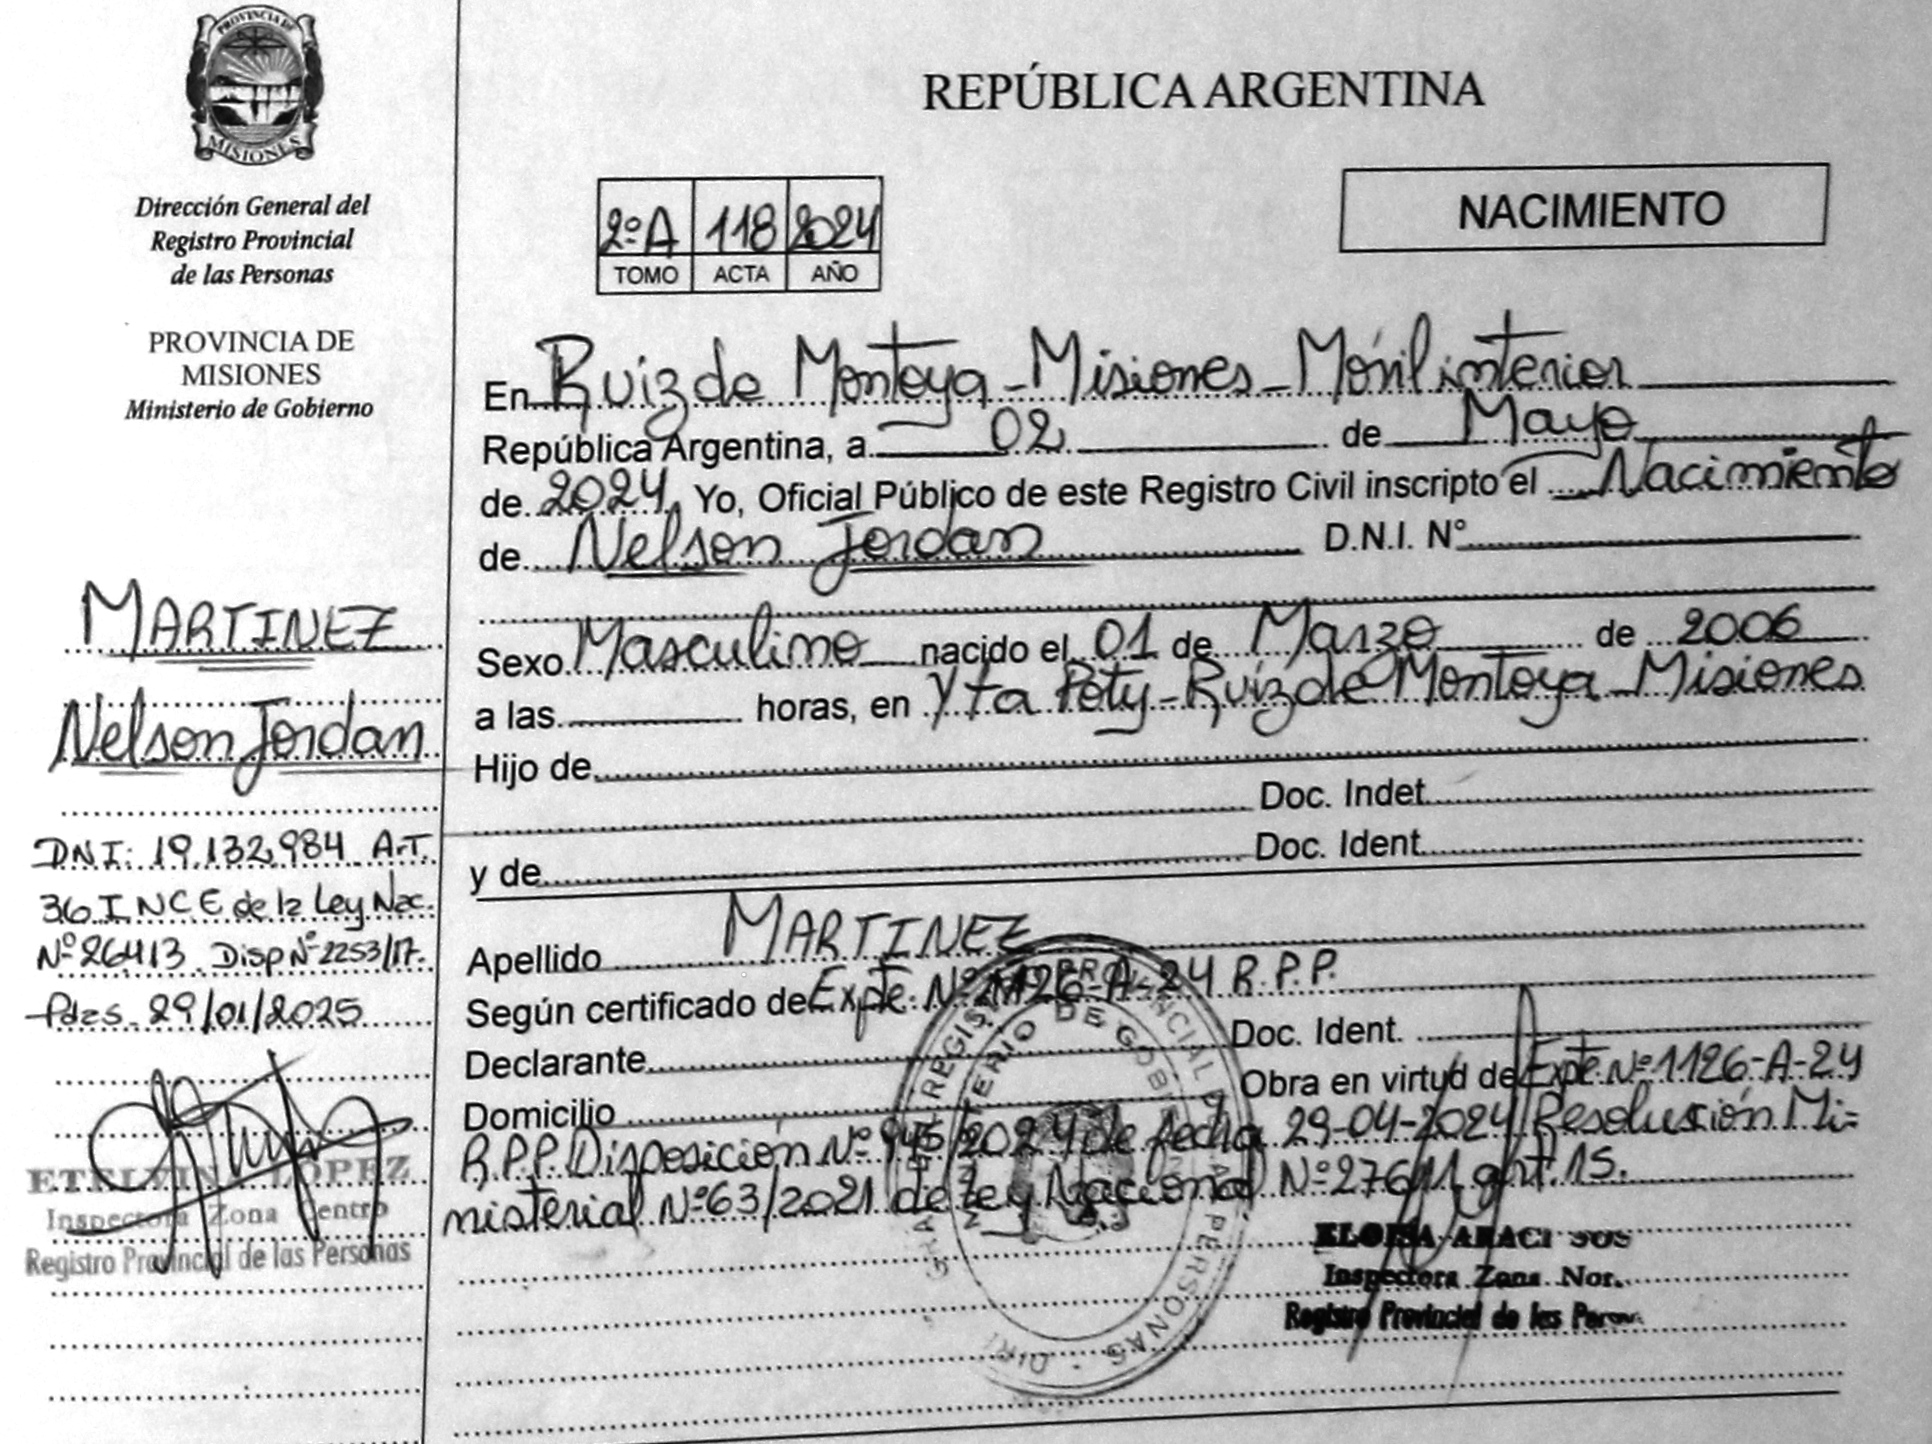 PROVINCIA DE
MISIONES
Dirección General del
Registro Provincial
de las Personas
PROVINCIA DE
MISIONES
Ministerio de Gobierno
MARTINEZ
Nelson Jordan
DNI: 19.132.984 A.T.
36 INC E de la Ley Nac.
Nº 26413 Disp Nº 2253/17.
Pdas. 29/01/2025
LOPEZ
Inspectora Zona Centro
Registro Provincial de las Personas
REPÚBLICA ARGENTINA
2ºA 118 2024
TOMO ACTA AÑO
NACIMIENTO
En Ruiz de Montoya - Misiones - Móvil interior
República Argentina, a 02 de Mayo
de 2024 Yo, Oficial Público de este Registro Civil inscripto el Nacimiento
de Nelson Jordan D.N.I. N°
Sexo Masculino nacido el 01 de Marzo de 2006
a las horas, en Yta Poty - Ruiz de Montoya - Misiones
Hijo de
Doc. Indet.
y de Doc. Ident.
Apellido MARTINEZ
Según certificado de Expte. Nº 1126-A-24 R.P.P.
Declarante Doc. Ident.
Domicilio Obra en virtud de Expte Nº 1126-A-24
R.P.P. Disposición Nº 945/2024 de fecha 29-04-2024 Resolución Mi=
nisterial Nº 63/2021 de Ley Nacional Nº 27611 art. 15.
Inspectora Zona
Registro Provincial de las